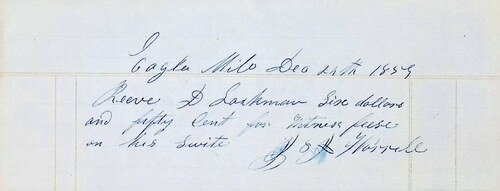 Eagle Milo Dec 24th 1859
Receve D Lockman Six dollars
and fifty Cent for Witness feese
on his Suite